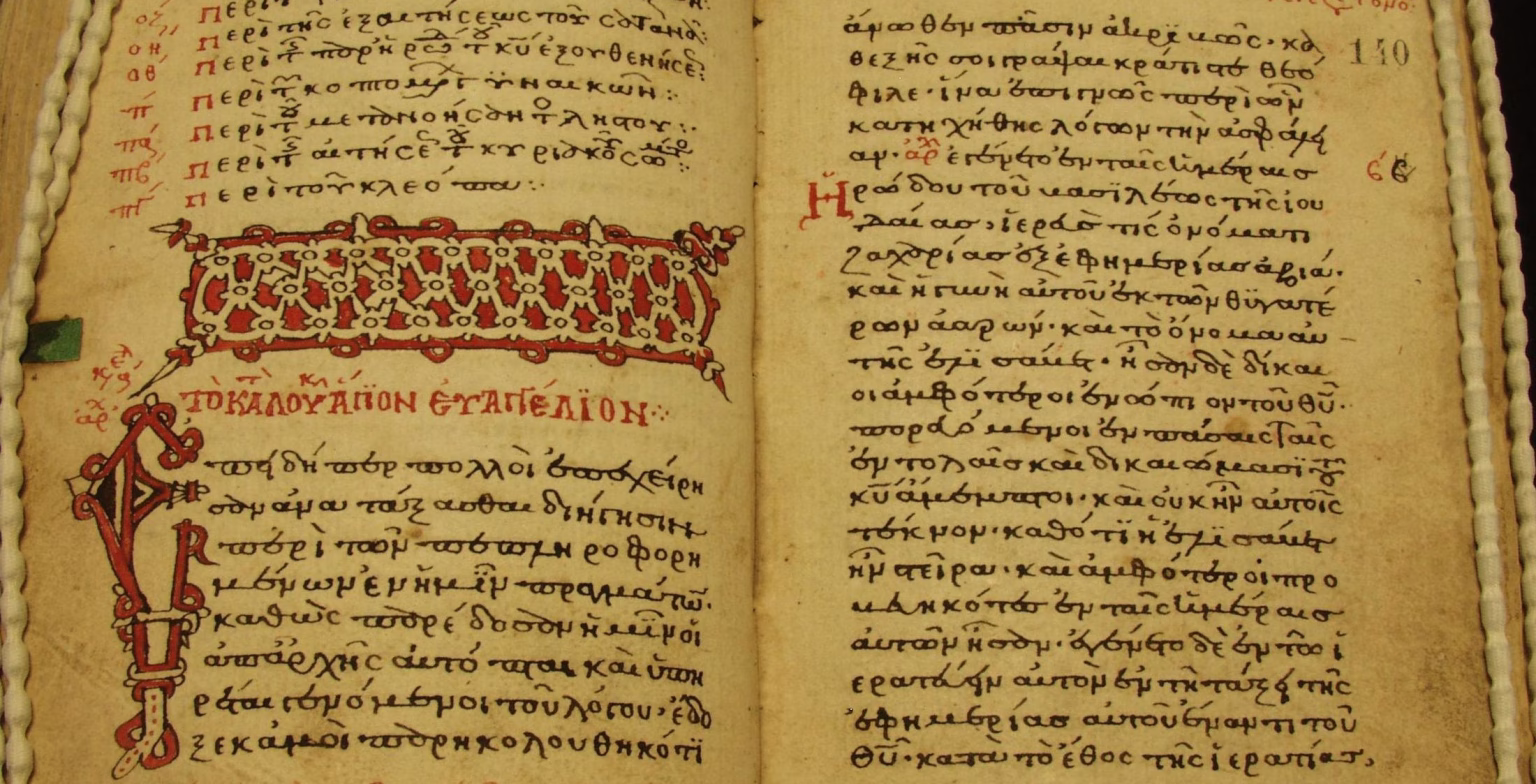 Περὶ
οη Περὶ τῆς ἐξαιτήσεως τοῦ σατανᾶ:
οθ Περὶ τ
π Περὶ τ κοπομ γυναικῶν:
πα Περὶ τ μετανοήσαντ ληστοῦ:
πβ Περὶ τ αἰτήσ τ κυριακοῦ σώμ
πγ Περὶ τοῦ κλεόπα:
ΤΟ ΚΑ ΛΟΥ ΑΓΙΟΝ ΕΥΑΓΓΕΛΙΟΝ
Ἐπειδήπερ πολλοὶ ἐπεχείρη
σαν ἀνατάξασθαι διήγησιν
περὶ τῶν πεπληροφορη
μένων ἐν ἡμῖν πραγμάτω.
καθὼς παρέδοσαν ἡμῖν οἱ
ἀπ' ἀρχῆς αὐτόπται καὶ ὑπη
ρέται γενόμενοι τοῦ λόγου· ἔδο
ξε κἀμοὶ παρηκολουθηκότι
140
ἄνωθεν πᾶσιν ἀκριβῶς· κα
θεξῆς σοι γράψαι κράτιστε θεό
φιλε· ἵνα ἐπιγνῶς περὶ ὧν
κατηχήθης λόγων τὴν ἀσφάλει
αν· ἀρχ ἐγένετο ἐν ταῖς ἡμέραις
Ἡρώδου τοῦ βασιλέως τῆς ἰου
δαίας, ἱερεύς τις ὀνόματι
ζαχαρίας ἐξ ἐφημερίας ἀβιά·
καὶ ἡ γυνὴ αὐτοῦ ἐκ τῶν θυγατέ
ρων ἀαρών· καὶ τὸ ὄνομα αὐ
τῆς ἐλισάβετ· ἦσαν δὲ δίκαι
οι ἀμφότεροι ἐνώπιον τοῦ θυ·
πορευόμενοι ἐν πάσαις ταῖς
ἐντολαῖς καὶ δικαιώμασι τοῦ
κυ ἄμεμπτοι· καὶ οὐκ ἦν αὐτοῖς
τέκνον· καθότι ἡ ἐλισάβετ
ἦν στεῖρα· καὶ ἀμφότεροι προ
βεβηκότες ἐν ταῖς ἡμέραις
αὐτῶν ἦσαν· ἐγένετο δὲ ἐν τῶ ἱ
ερατεύειν αὐτὸν ἐν τῆ τάξει τῆς
ἐφημερίας αὐτοῦ ἔναντι τοῦ
θυ· κατὰ τὸ ἔθος τῆς ἱερατίας,